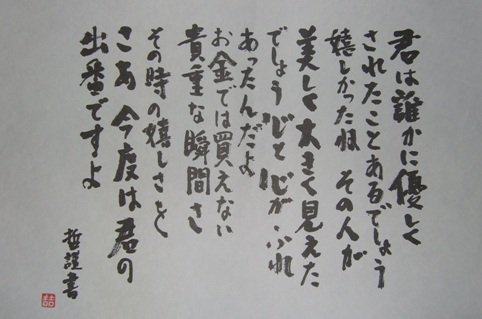 君は誰かに優しく
されたことあるでしょう
嬉しかったね その人が
美しく大きく見えた
でしょう 心と心がふれ
あったんだよ
お金では買えない
貴重な瞬間さ
その時の嬉しさを
さあ 今度は君の
出番ですよ
哲謹書